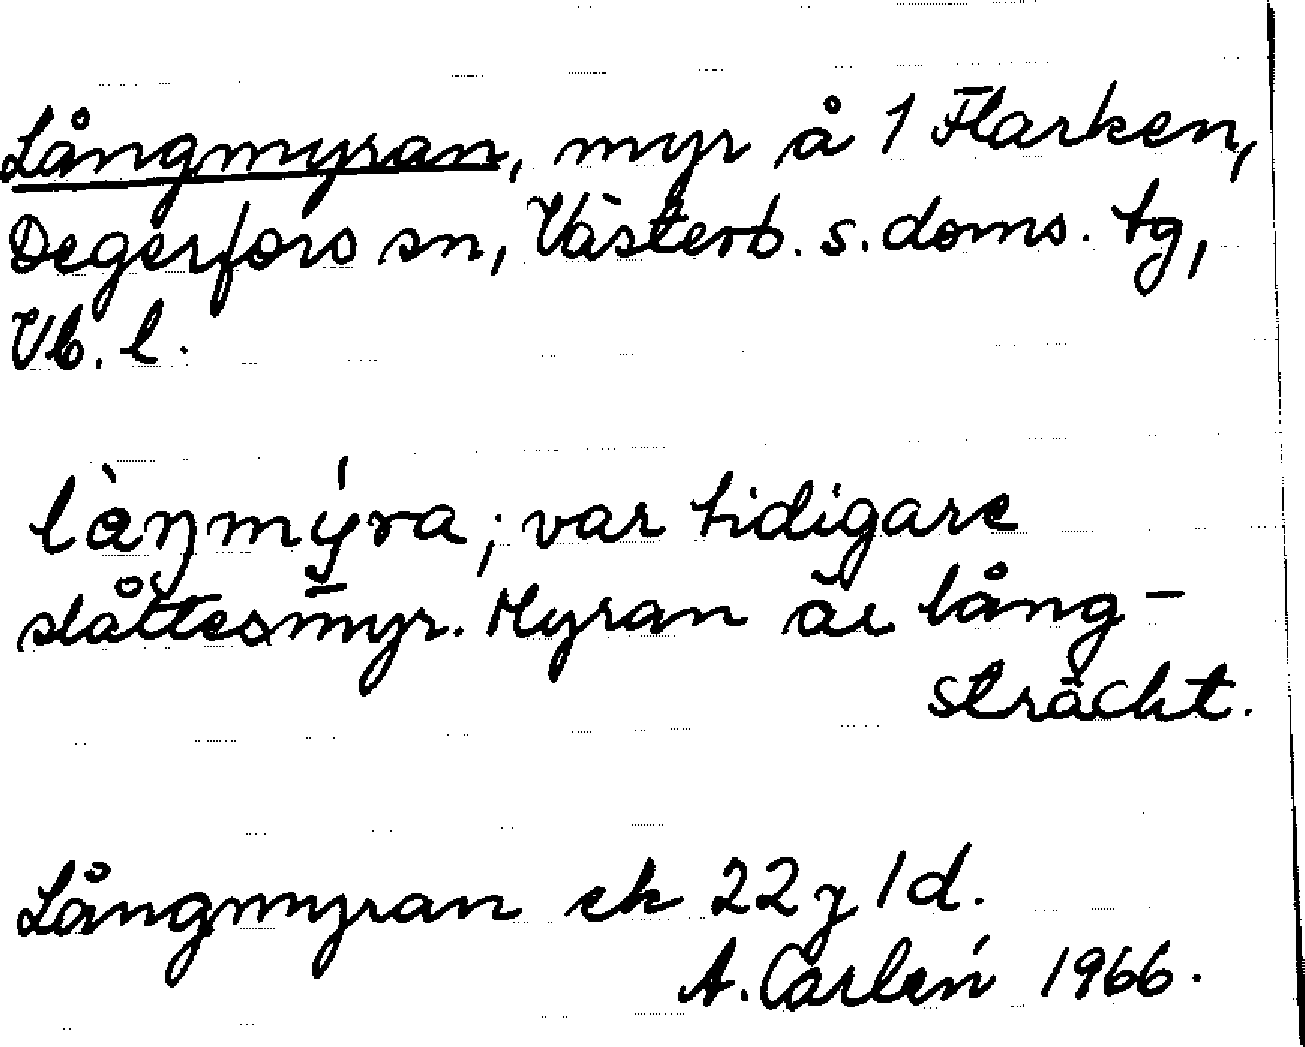 Långmyran, myr å 1 Flarken,
Degerfors sn, Västerb. s. doms. tg,
Vb. l.
làŋmýra; var tidigare
slåttesmyr. Myran är lång-
sträckt.
Långmyran ek 22 j 1d.
A. Carlén 1966.